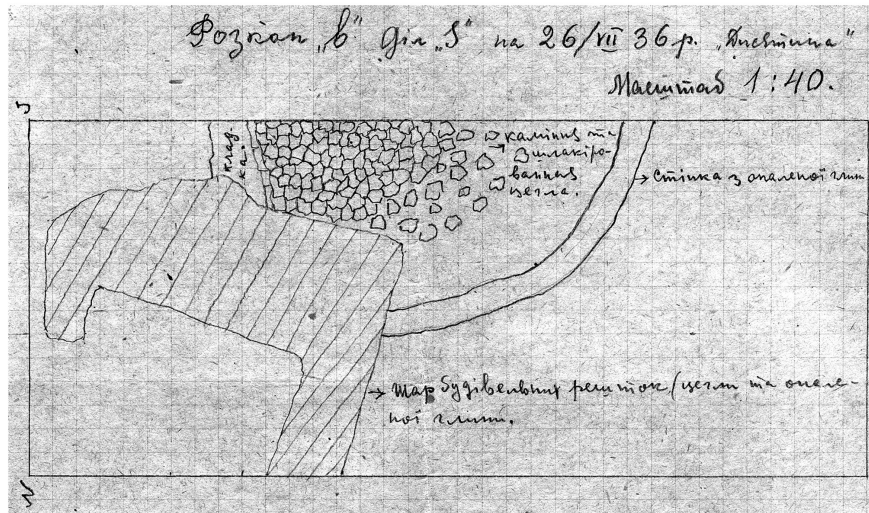 Розкоп „В" Діл „S" на 26/VII 36 р.
Масштаб 1:40.
S
клад-
ка.
каміння та
шлакіро-
ванная
цегла.
Стінка з опаленої глини
Шар будівельних решток (цегли та опале-
ної глини.
N